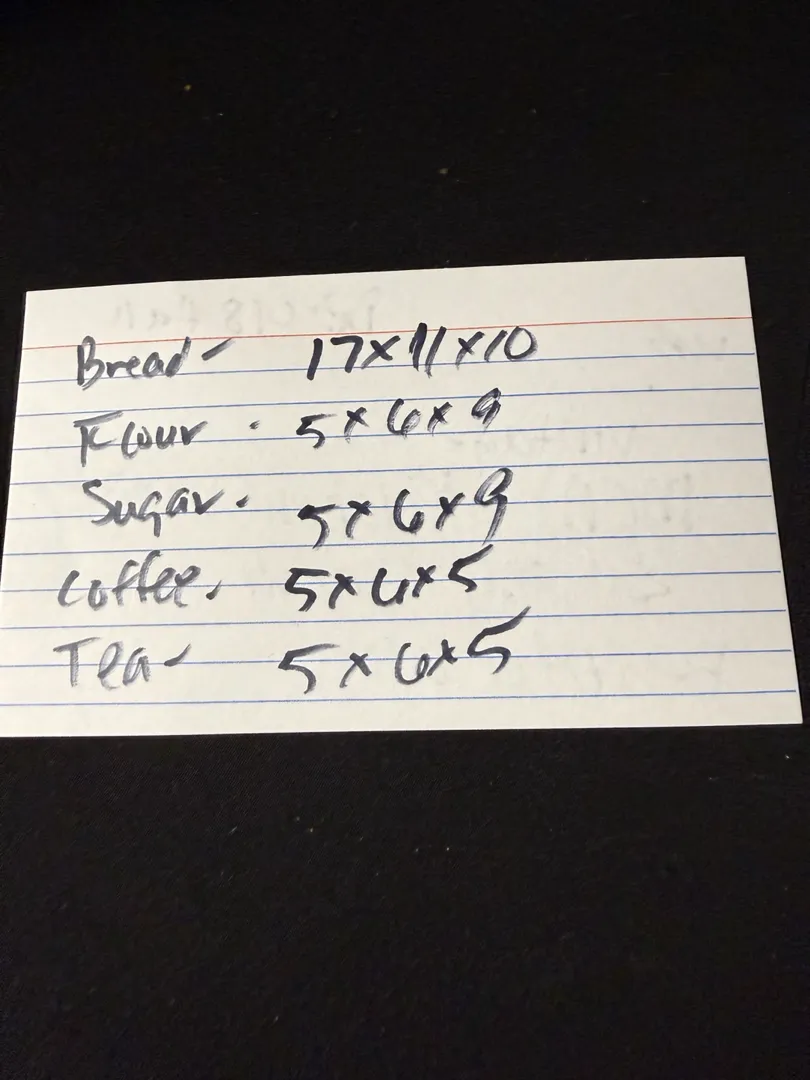 Bread - 17x11x10
Flour . 5x6x9
Sugar. 5x6x9
Coffee. 5x6x5
Tea - 5x6x5